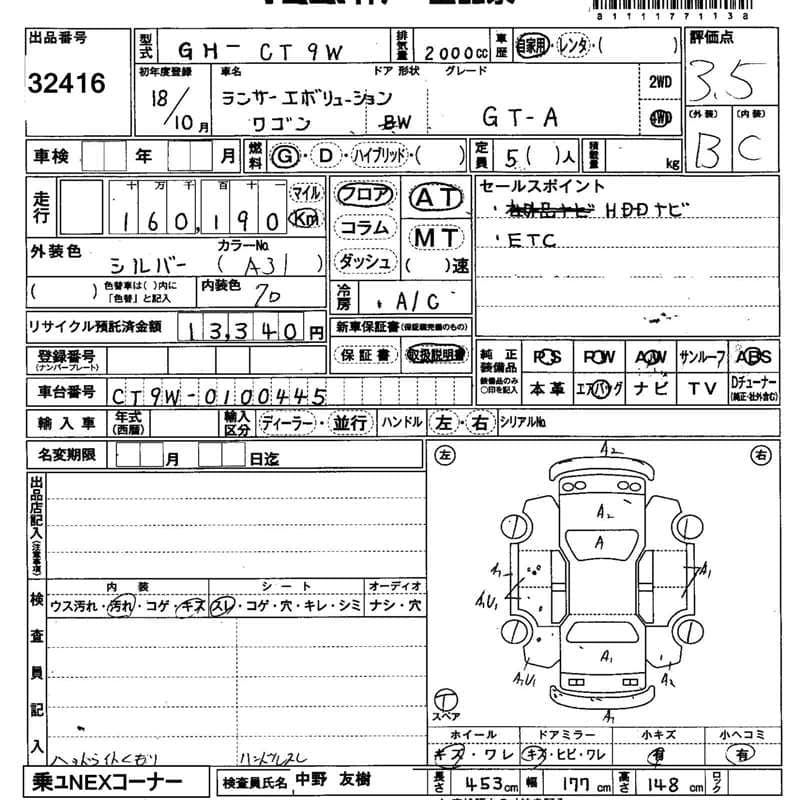 811177138
出品番号 型式 GH- CT9W 排気量 2000cc 車歴 自家用・レンタ・( ) 評価点
32416
3.5
初年度登録 車名 ドア 形状 グレード 2WD
18/10月 ランサーエボリューション
ワゴン W GT-A 4WD
(外装) (内装)
B C
車検 年 月 燃料 G・D・ハイブリッド・( ) 定員 5( )人 積載量 kg
走行 十 万 千 百 十 一 マイル フロア AT セールスポイント
160,190 Km
・社外品ナビ HDDナビ
コラム MT ・ETC
外装色 カラーNo. ダッシュ ( )速
シルバー (A31)
( ) 色替車は( )内に「色替」と記入 内装色 70 冷房 A/C
リサイクル預託済金額 13,340円 新車保証書(保証継続のもの)
登録番号(ナンバープレート) 保証書 取扱説明書 純正装備品 装備品のみ○印を記入 P.S P.W A.W サンルーフ ABS
車台番号 CT9W-0100445 本革 エアバッグ ナビ TV Dチューナー(純正・社外含む)
輸入車 年式(西暦) 輸入区分 ディーラー・並行 ハンドル 左・右 シリアルNo.
名変期限 月 日迄 左 右
出品店記入(注意事項)
A2
A2
A
A1 A1
A1U1
A1
A1U1 A2
A1
T
スペア
検査員記入 内装 シート オーディオ
ウス汚れ・汚れ・コゲ・キズ スレ・コゲ・穴・キレ・シミ ナシ・穴
ヘッドライトくもり ハンドルスレ
ホイール ドアミラー 小キズ 小ヘコミ
キズ・ワレ キズ・ヒビ・ワレ 有 有
乗ユNEXコーナー 検査員氏名 中野 友樹 長さ 453cm 幅 177cm 高さ 148cm ロック